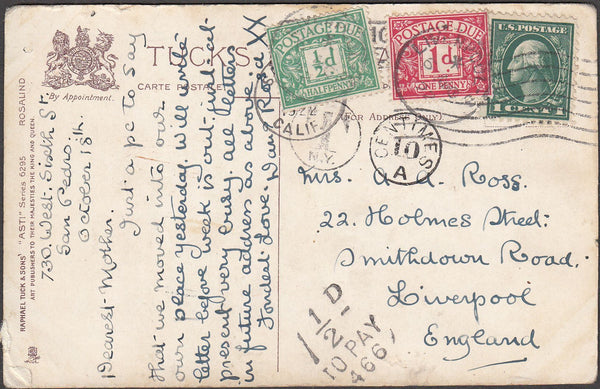 TUCK'S
CARTE POSTALE
By Appointment.
(FOR ADDRESS ONLY)
RAPHAEL TUCK & SONS' "ASTI" SERIES 6295 ROSALIND
ART PUBLISHERS TO THEIR MAJESTIES THE KING AND QUEEN.
730. West. Sixth St.
San Pedro.
October 18th
Dearest Mother.
Just a p c to say
that we moved into our
own place yesterday. Will write
letter before week is out. is but
present very busy. all letters
in future address as above.
Fondest Love.
XX
POSTAGE DUE
½D
HALFPENNY
POSTAGE DUE
1D
ONE PENNY
U.S. POSTAGE
1 CENT 1
CALIF.
N.Y.
CENTIMES
10
A
Mrs. A. A. Ross.
22. Holmes Street.
Smithdown Road.
Liverpool
England
1/2D
TO PAY
466